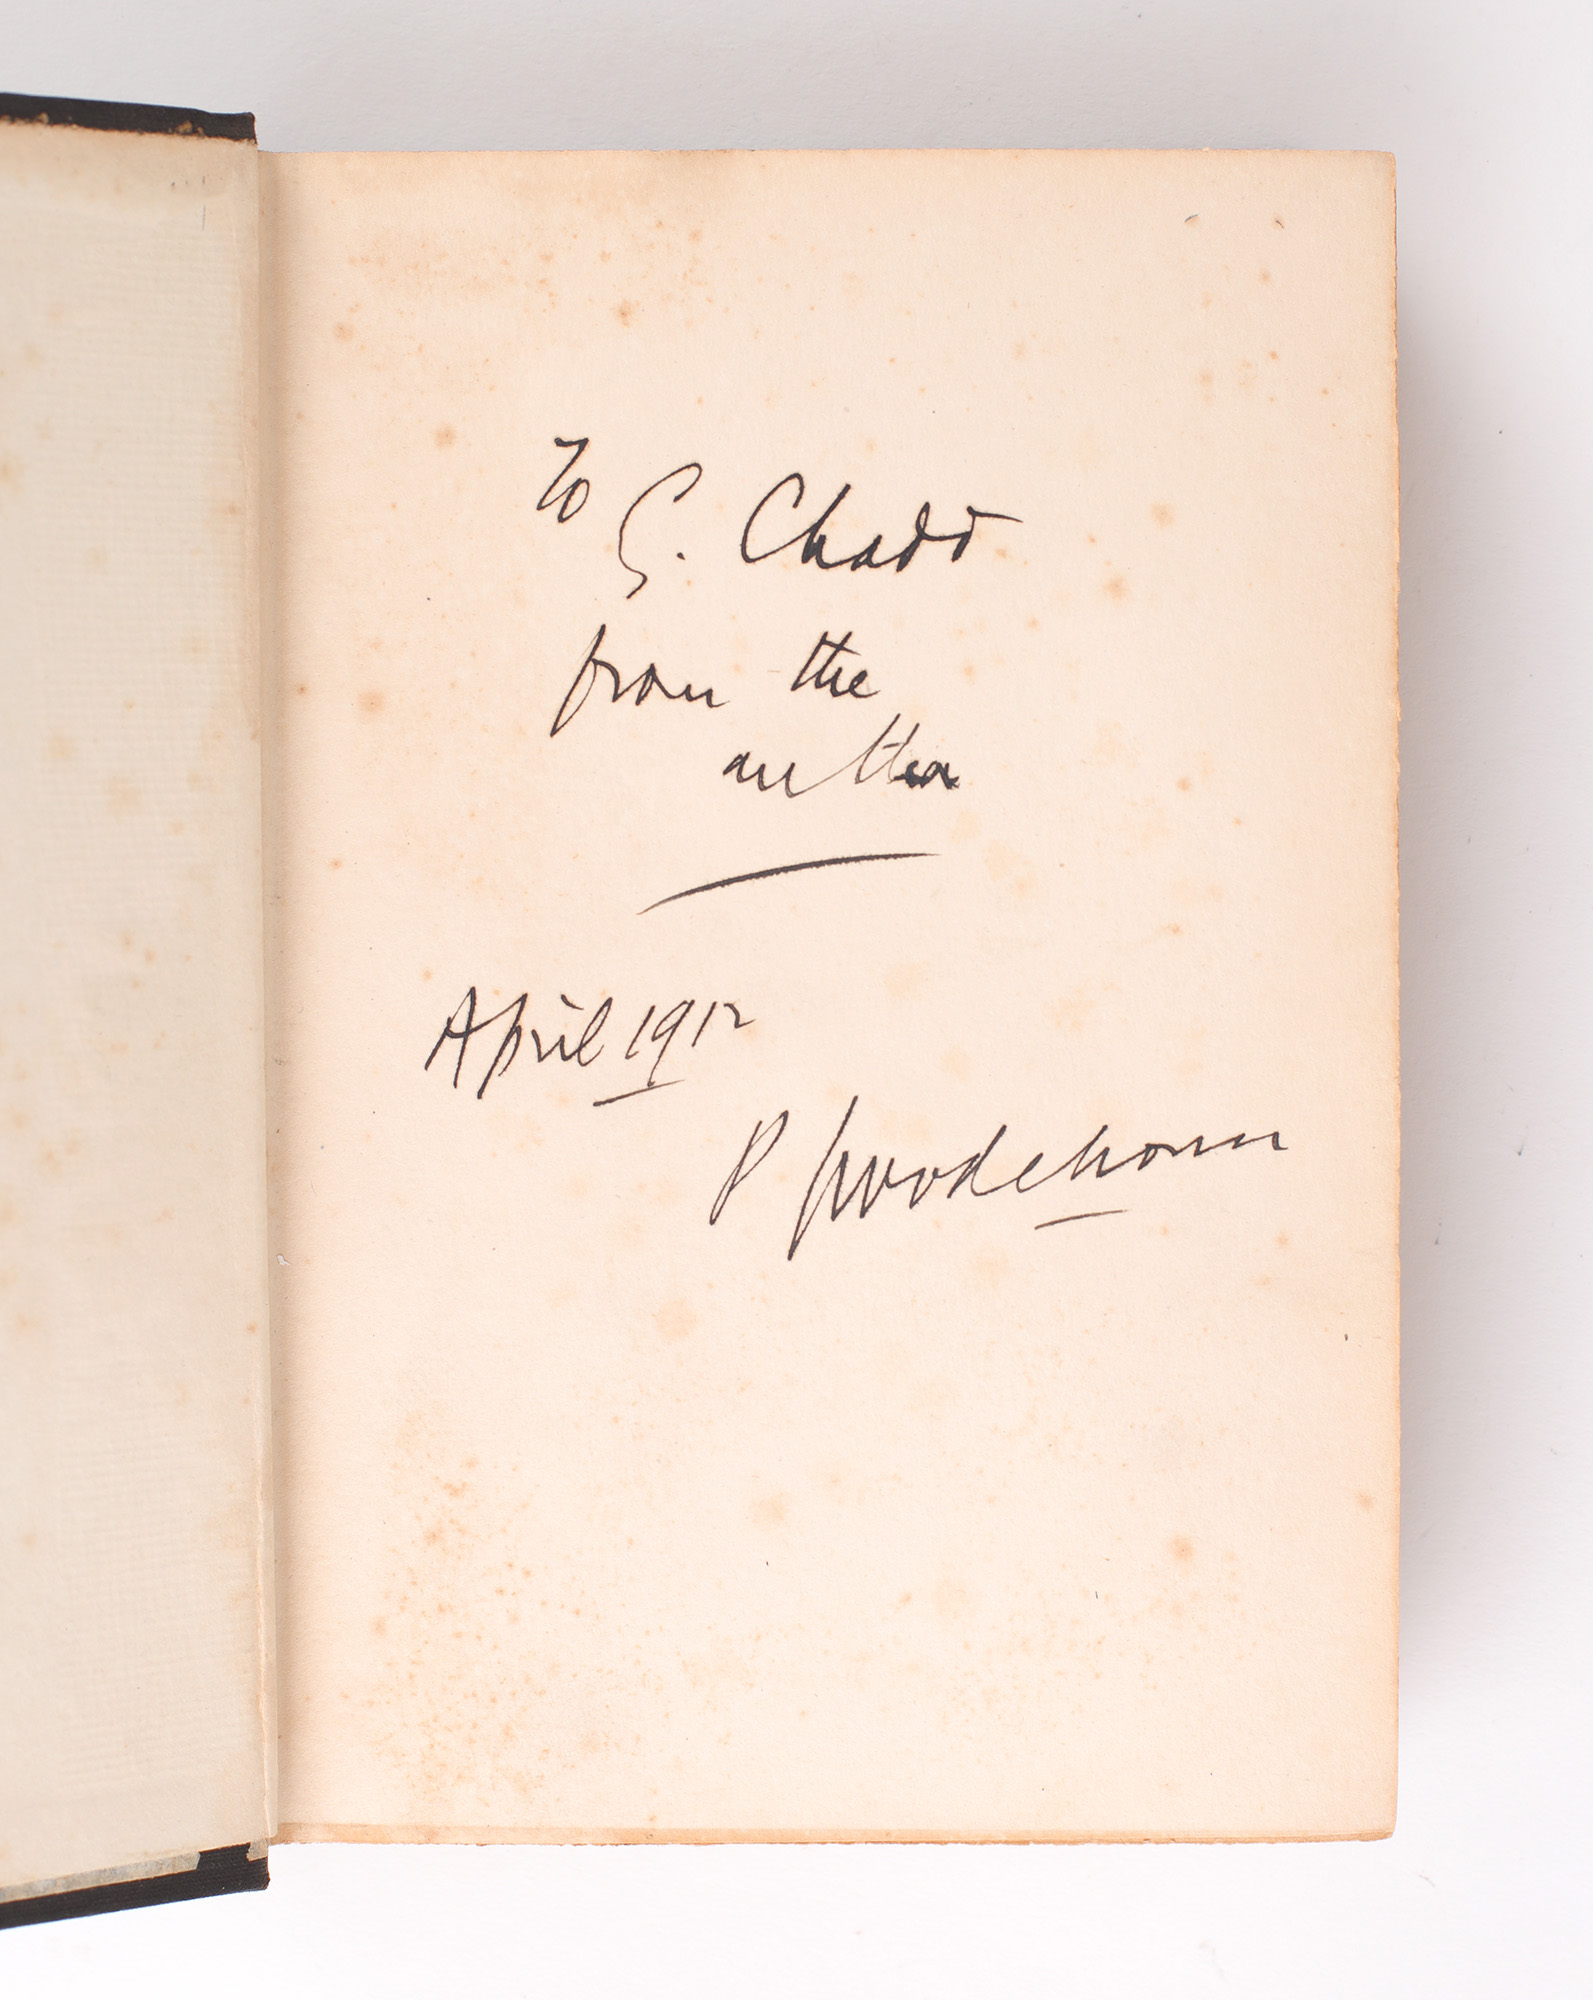 To G. Chadd
from the
author
April 1912
P Wodehouse